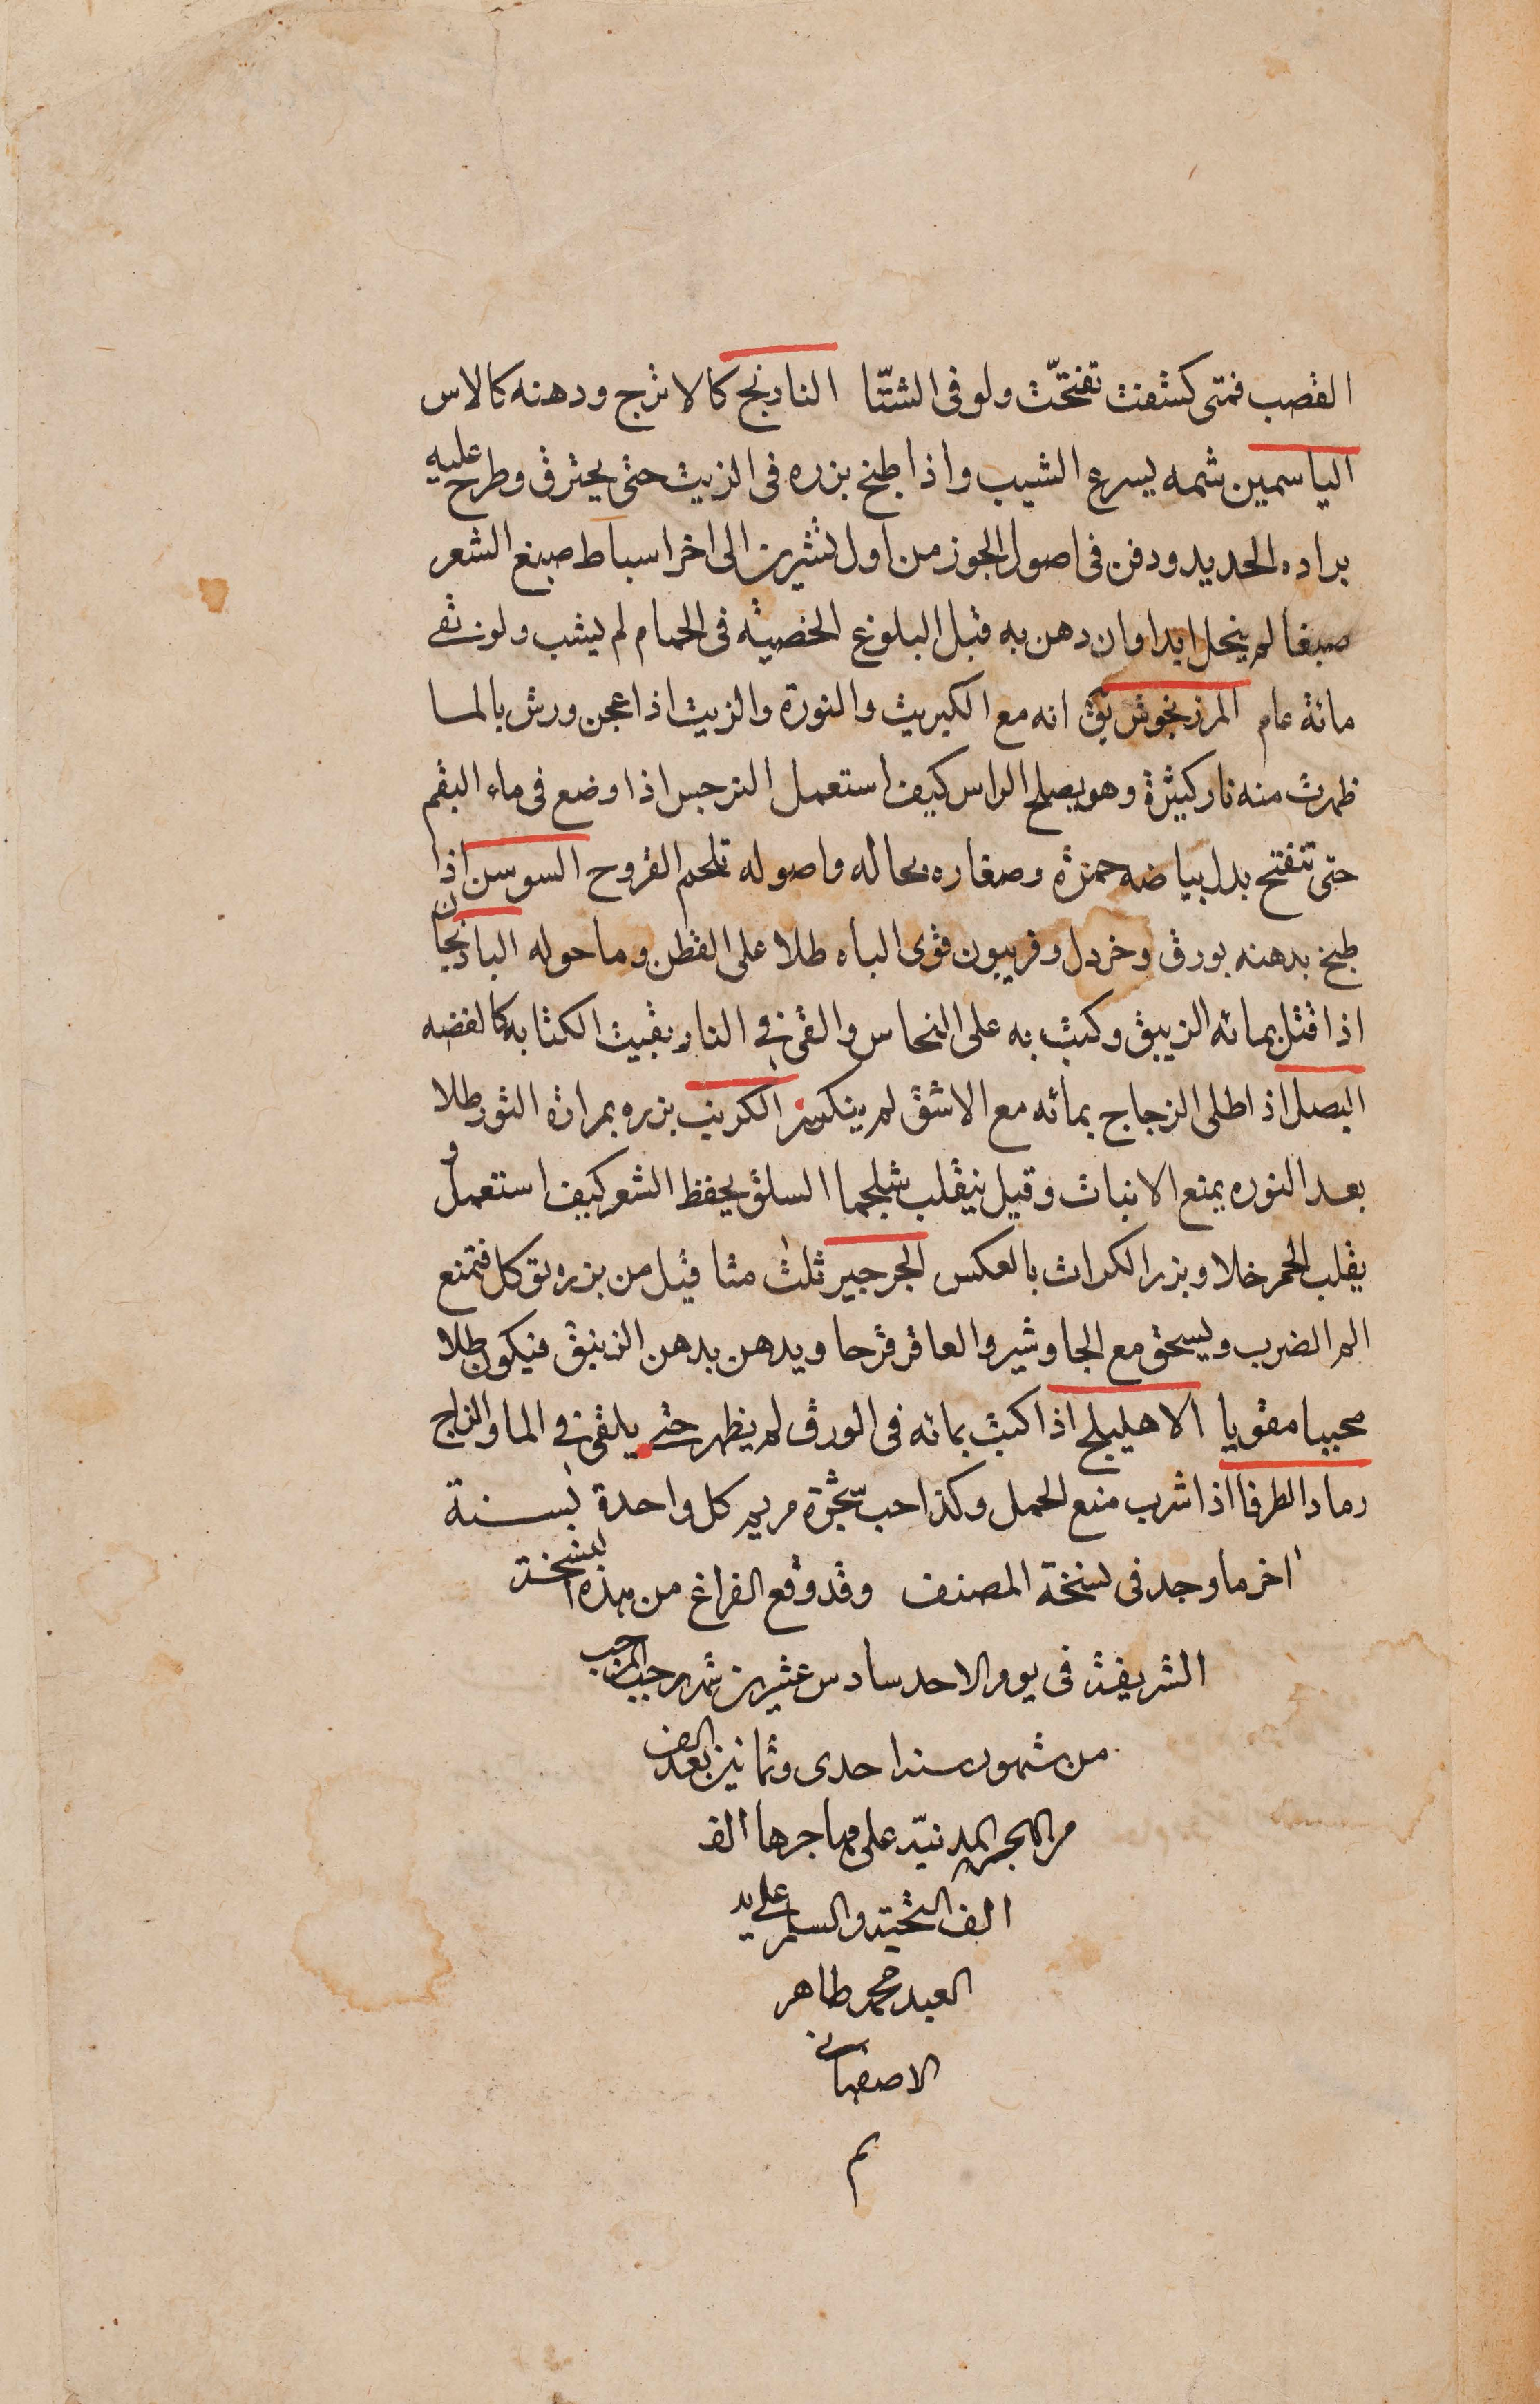 القصب فمتى كشفت تفتحّت ولو فى الشتّا النارنج كالاترج ودهنه كالاس
الياسمين شمه يسرع الشيب واذا طبخ بزره فى الزيت حتى يحترق وطرح عليه
براده الحديد ودفن فى اصول الجوز من اول تشرين الى اخر اسباط صبغ الشعر
صبغا لم ينحل ابدا وان دهن به قبل البلوغ الخصيته فى الحمام لم يشب ولو نيف
مائة عام المرزنجوش يق انه مع الكبريت والنورة والزيت اذا عجن ورش بالما
ظهرت منه نار كبيرة وهو يصلح الراس كيف استعمل النرجس اذا وضع فى ماء البقم
حتى تنفتح بدل بياضه حمرة وصفاره بحاله واصوله تلحم القروح السوسن اذا
طبخ بدهنه بورق وخردل وفربيون قوى الباه طلا على القطن وما حوله الباذنجان
اذا قتل بمائه الزيبق وكتب به على النحاس والقى فى النار بقيت الكتابه كالفضه
البصل اذ اطلى الزجاج بمائه مع الاشق لم ينكسر الكرنب بزره بمرارة الثور طلا
بعد النوره يمنع الانبات وقيل ينقلب شلجما السلق يحفظ الشعر كيف استعمل و
يقلب الخمر خلا وبزر الكراث بالعكس الجرجير ثلث مثاقيل من بزره توكل فتمنع
الم الضرب ويسحق مع الجاوشير والعاقرقرحا ويدهن بدهن الزنبق فيكون طلا
محببا مقويا الاهليلج اذا كتب بمائه فى الورق لم يظهر حتى يلقى فى الما والزاج
رماد الطرفا اذا شرب منع الحمل وكذا حب شجرة مريم كل واحدة بسنة
اخر ما وجد فى نسخة المصنف وقد وقع الفراغ من هذه النسخة
الشريفة فى يوم الاحد سادس عشرين شهر رجب المرجب
من شهور سنه احدى وثمانين بعد الالف
من الهجرة المدنيّة على مهاجرها الف
الف التحية والسلم على يد
العبد محمد طاهر
الاصفهانى
م